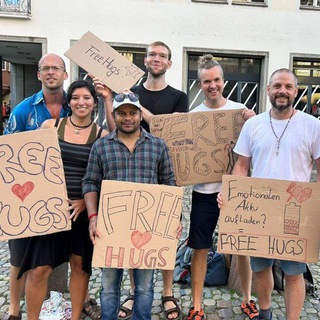 Free Hugs
FREE
HUGS
FREE
HUGS
FREE
HUGS
Emotionalen
Akku
aufladen?
FREE HUGS